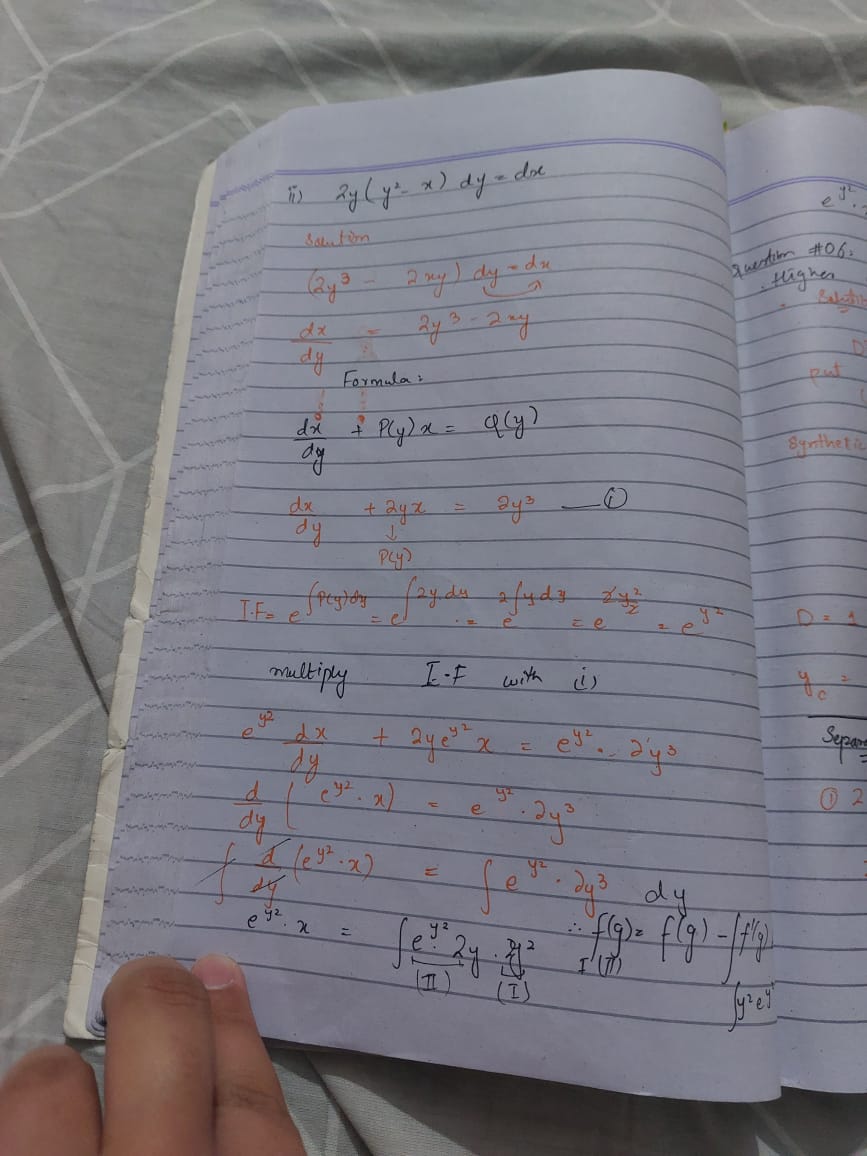 ii) 2y(y²- x) dy = dx
Solution
(2y³ - 2xy) dy = dx
dx/dy = 2y³ - 2xy
Formula:
dx/dy + P(y)x = Q(y)
dx/dy + 2yx = 2y³ —(i)
↓
P(y)
I.F = e^∫P(y)dy = e^∫2y.dy = e^2∫ydy = e^2y²/2 = e^y²
multiply I.F with (i)
e^y² dx/dy + 2ye^y² x = e^y² . 2y³
d/dy (e^y² . x) = e^y² . 2y³
∫ d/dy (e^y² . x) = ∫e^y² . 2y³ dy
e^y² . x = ∫e^y² 2y . y² ∴ ∫f(g) = f(g) - ∫f'(g)
(II) (I) I (II) ∫y²e^y
e^y².
Question #06:
Higher
put
Synthetic
D = 1
y_c =
① 2